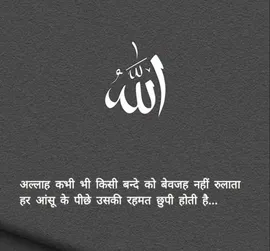 الله
अल्लाह कभी भी किसी बन्दे को बेवजह नहीं रुलाता
हर आंसू के पीछे उसकी रहमत छुपी होती है...